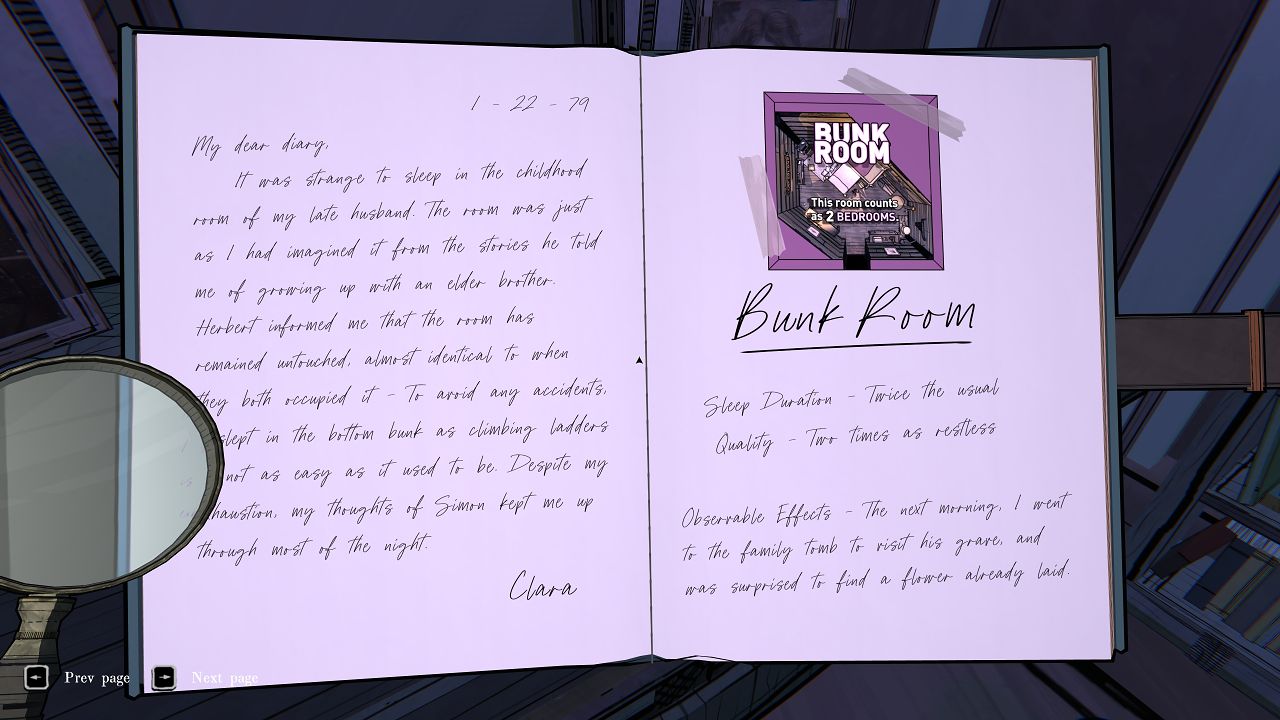 1 - 22 - 79
My dear diary,
It was strange to sleep in the childhood
room of my late husband. The room was just
as I had imagined it from the stories he told
me of growing up with an elder brother.
Herbert informed me that the room has
remained untouched, almost identical to when
they both occupied it - To avoid any accidents,
slept in the bottom bunk as climbing ladders
not as easy as it used to be. Despite my
haustion, my thoughts of Simon kept me up
through most of the night.
Clara
BUNK
ROOM
This room counts
as 2 BEDROOMS.
Bunk Room
Sleep Duration - Twice the usual
Quality - Two times as restless
Observable Effects - The next morning, I went
to the family tomb to visit his grave, and
was surprised to find a flower already laid.
Prev page
Next page